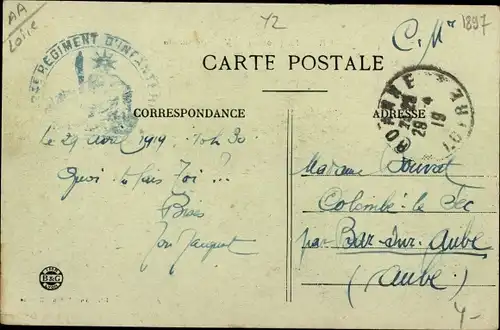 AA
Loire
Y2
C. M
1897
REGIMENT D'INFANTERIE
CARTE POSTALE
CORRESPONDANCE
ADRESSE
ROANNE
29 -4
19
LOIRE
Le 29 Avril 1919 10h30
Quoi te fais Toi ?
Bises
Ton Jacquot
Madame
Colombé le Sec
par Bar-sur-Aube
(Aube)
B&G
4-